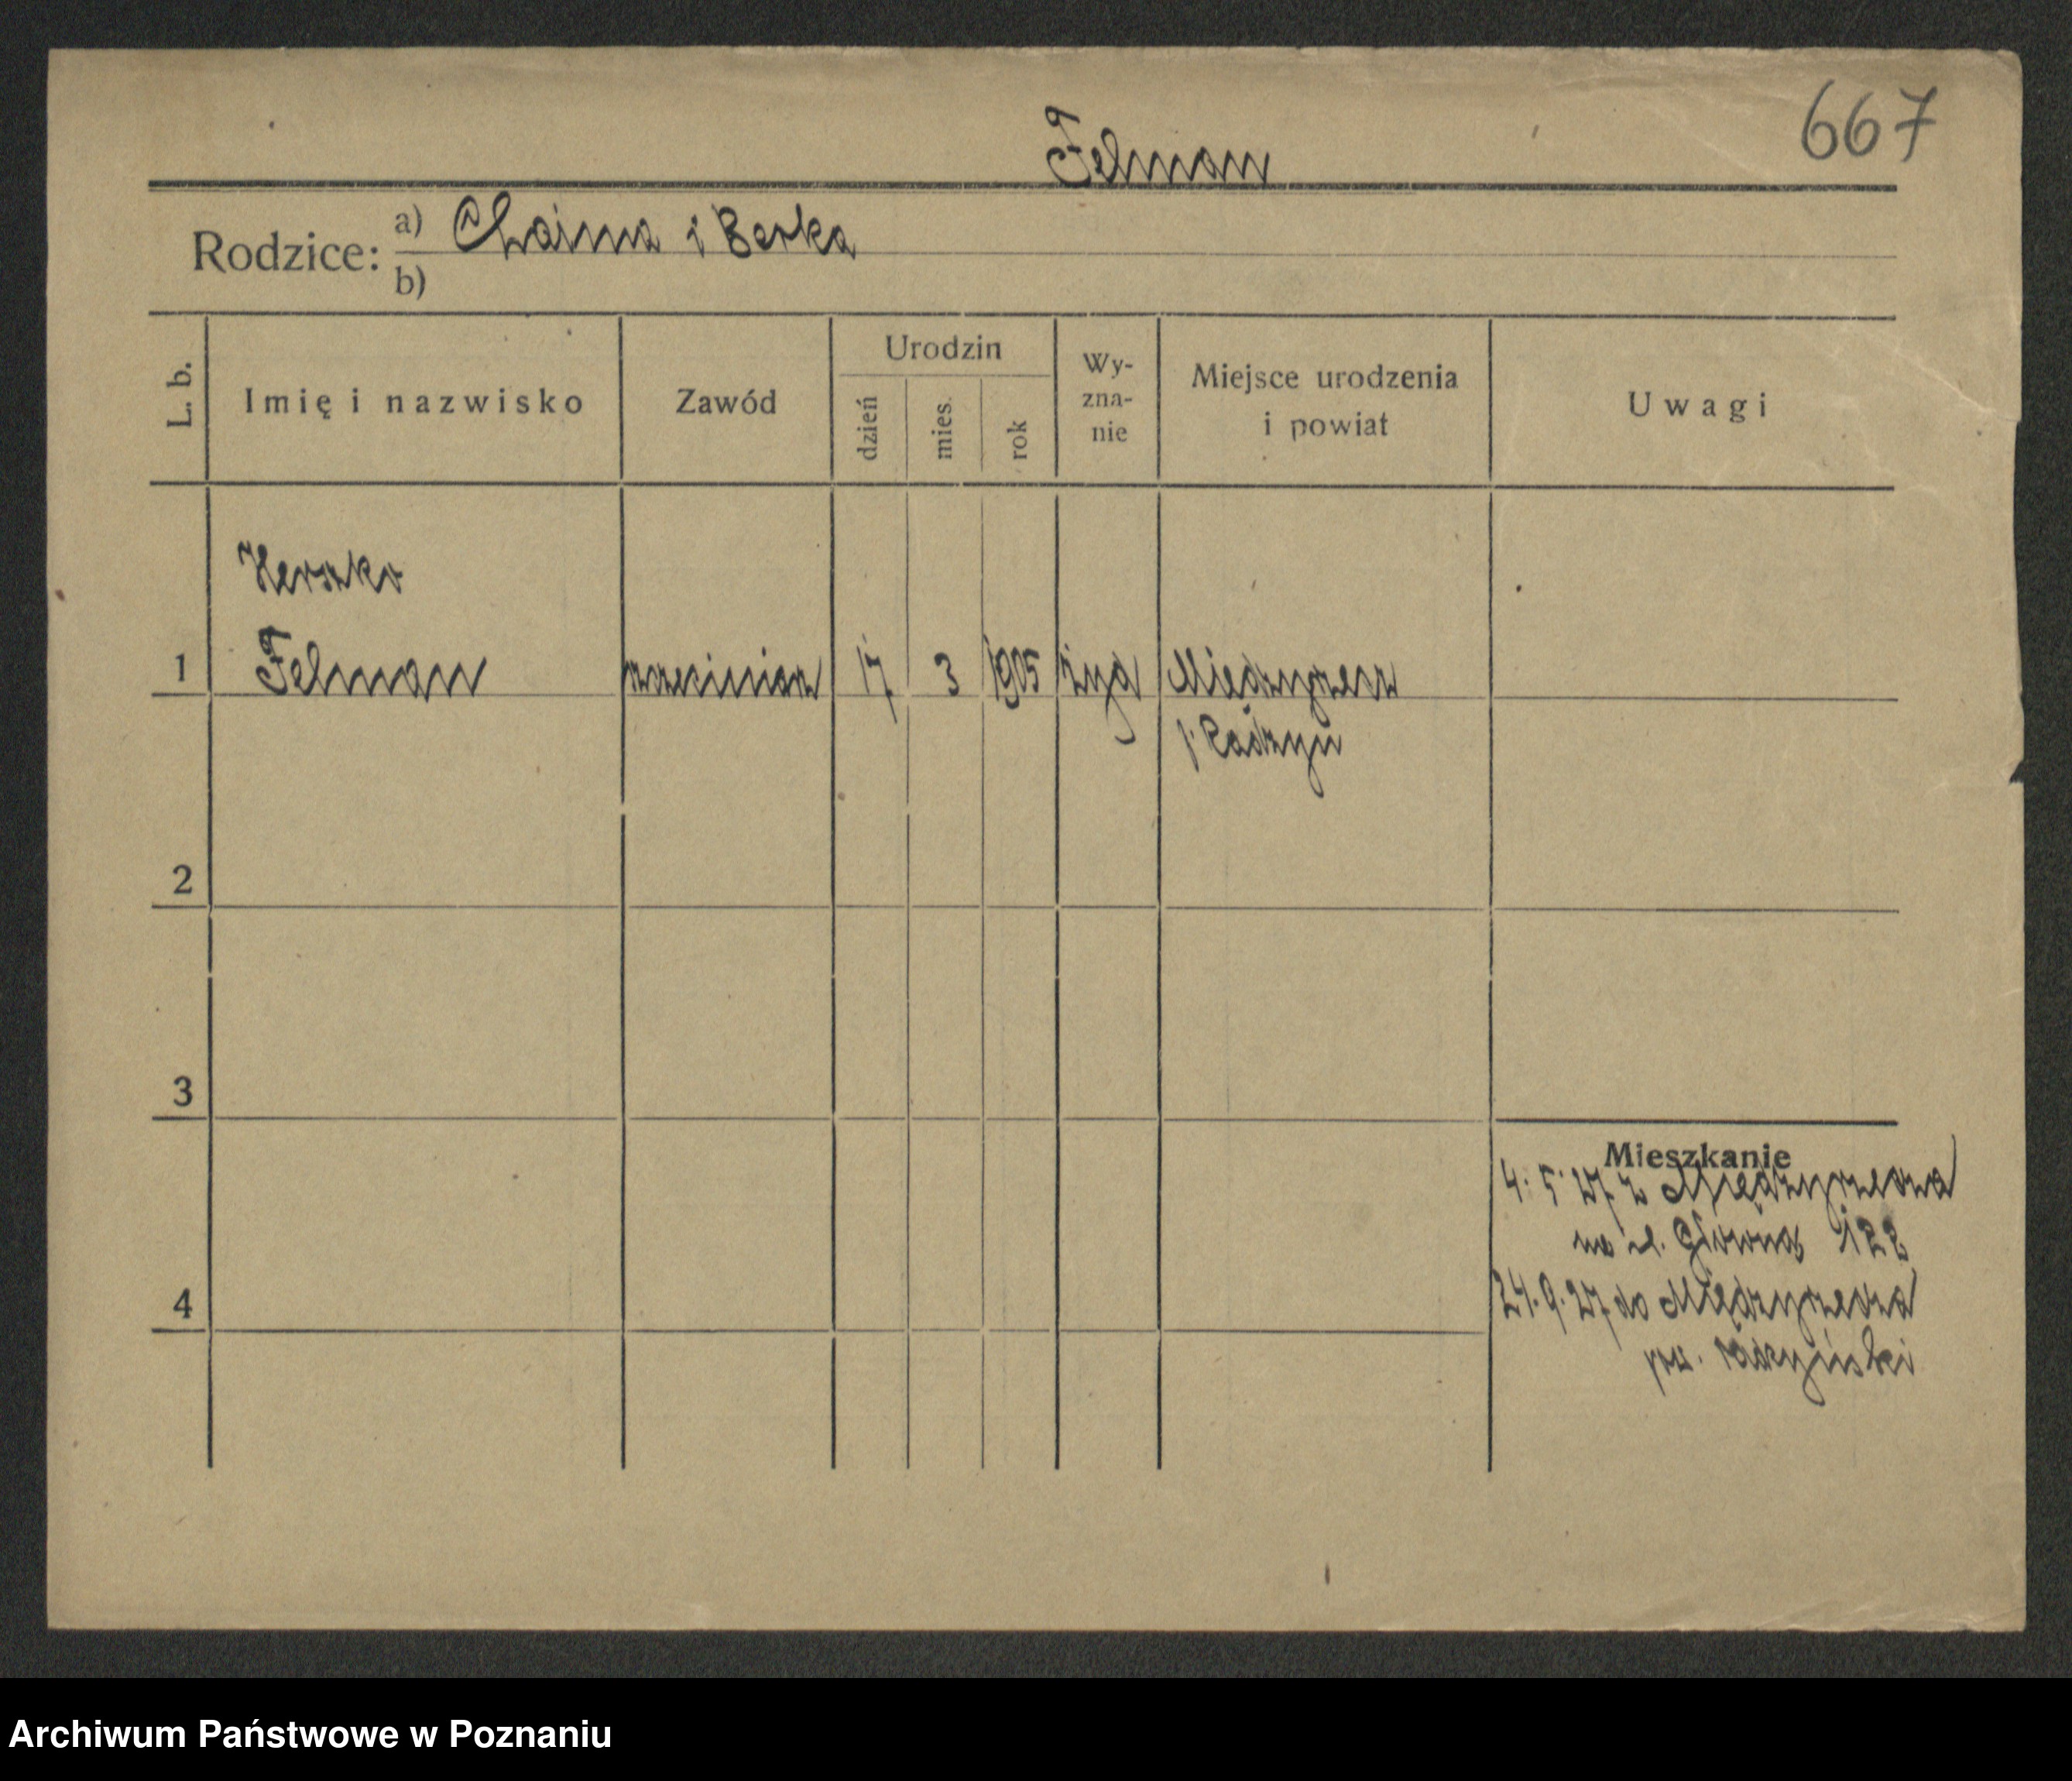 667
Felman
Rodzice: a) Chaima i Berka
b)
L. b. Imię i nazwisko Zawód Urodzin dzień mies. rok Wy-zna-nie Miejsce urodzenia i powiat Uwagi
Herszko
1 Felman szczeciniarz 17 3 1905 żyd Międzyrzecz
p. Radzyń
2
3
Mieszkanie
4. 5. 27 z Międzyrzecza
na ul. Główną 122
4
24. 9. 27 do Międzyrzecza
pow. radzyński
Archiwum Państwowe w Poznaniu